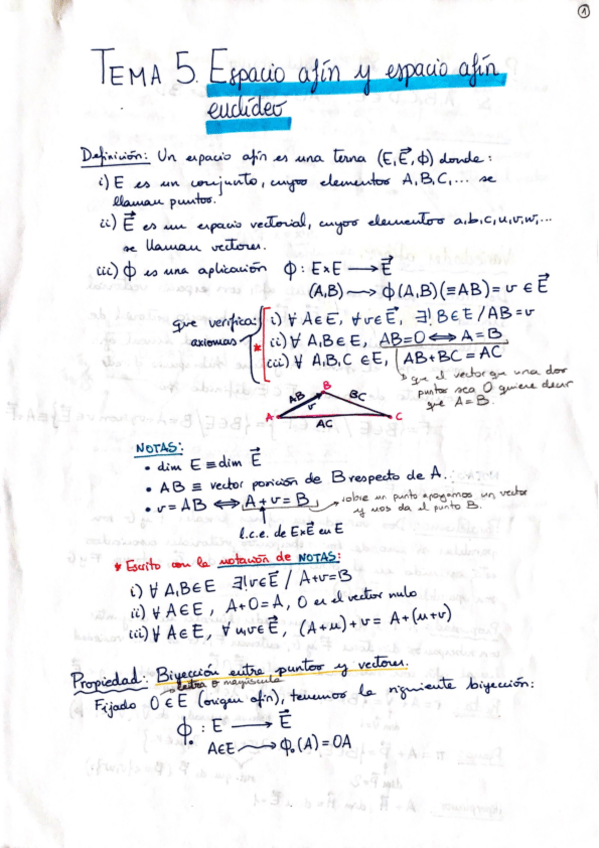 1
TEMA 5. Espacio afín y espacio afín
euclídeo
Definición: Un espacio afín es una terna (E, E⃗, ϕ) donde:
i) E es un conjunto, cuyos elementos A,B,C,... se
llaman puntos.
ii) E⃗ es un espacio vectorial, cuyos elementos a,b,c,u,v,w,...
se llaman vectores.
iii) ϕ es una aplicación ϕ: E×E ⟶ E⃗
(A,B) ⟶ ϕ(A,B)(≡AB) = v ∈ E⃗
que verifica: i) ∀ A∈E, ∀v∈E⃗, ∃! B∈E / AB = v
axiomas * ii) ∀ A,B∈E, AB=0 ⟺ A=B
iii) ∀ A,B,C ∈E, AB+BC = AC
que el vector que una dos
puntos sea 0 quiere decir
que A=B.
A B C AB v BC AC
NOTAS:
• dim E ≡ dim E⃗
• AB ≡ vector posición de B respecto de A.
• v = AB ⟺ A + v = B → sobre un punto apoyamos un vector
y nos da el punto B.
l.c.e. de E×E⃗ en E
* Escrito con la notación de NOTAS:
i) ∀ A,B∈E ∃! v∈E⃗ / A+v=B
ii) ∀ A∈E, A+0=A, 0 es el vector nulo
iii) ∀ A∈E, ∀ u,v∈E⃗, (A+u)+v = A+(u+v)
Propiedad: Biyección entre puntos y vectores.
letra o mayúscula
Fijado O∈E (origen afín), tenemos la siguiente biyección:
ϕₒ : E ⟶ E⃗
A∈E ⟶ ϕₒ(A) = OA